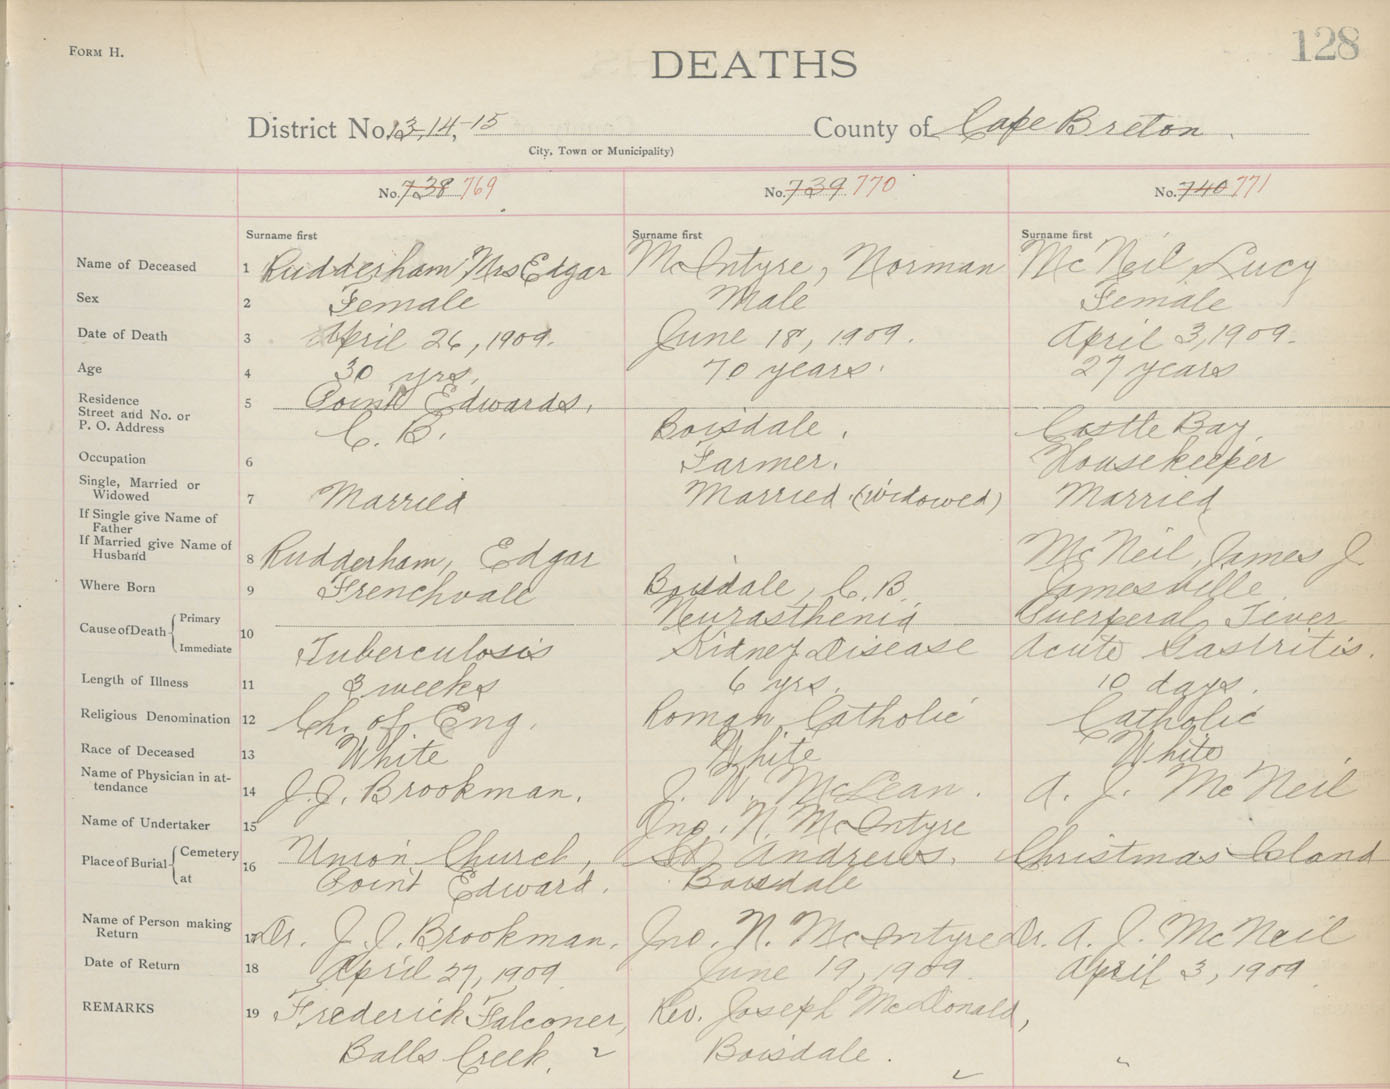 FORM H.
128
DEATHS
District No. 13, 14, 15 County of Cape Breton.
City, Town or Municipality)
No. 738 769
No. 739 770
No. 740 771
Surname first
Surname first
Surname first
Name of Deceased 1 Rudderham Mrs Edgar McIntyre, Norman McNeil Lucy
Sex 2 Female Male Female
Date of Death 3 April 26, 1909. June 18, 1909. April 3, 1909.
Age 4 30 yrs. 70 years. 27 years
Residence 5 Point Edwards,
Street and No. or
P. O. Address C. B. Boisdale. Castle Bay
Occupation 6 Farmer. Housekeeper
Single, Married or
Widowed 7 Married Married (Widowed) Married
If Single give Name of
Father
If Married give Name of
Husband 8 Rudderham, Edgar McNeil, James J.
Where Born 9 Frenchvale Boisdale, C. B. Jamesville
Cause of Death Primary Neurasthenia Puerperal Fever
10
Immediate Tuberculosis Kidney Disease Acute Gastritis.
Length of Illness 11 3 weeks 6 yrs. 10 days.
Religious Denomination 12 Ch. of Eng. Roman Catholic Catholic
Race of Deceased 13 White White White
Name of Physician in at-
tendance 14 J. J. Brookman. J. W. McLean. A. J. McNeil
Name of Undertaker 15 Jno. N. McIntyre
Place of Burial Cemetery 16 Union Church, St. Andrews. Christmas Island
at Point Edward. Boisdale
Name of Person making
Return 17 Dr. J. J. Brookman. Jno. N. McIntyre Dr. A. J. McNeil
Date of Return 18 April 27, 1909 June 19, 1909 April 3, 1909
REMARKS 19 Frederick Falconer, Rev. Joseph McDonald,
Balls Creek. Boisdale.